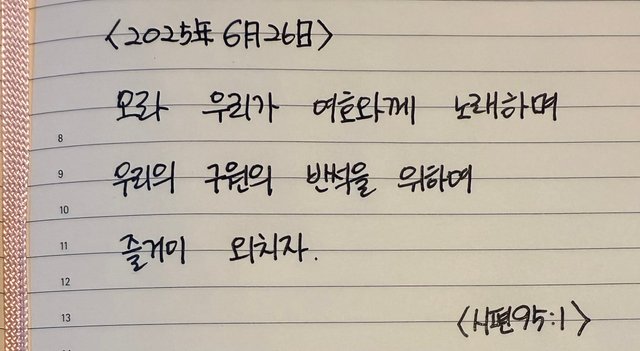 <2025年 6月 26日>
오라 우리가 여호와께 노래하며
8
우리의 구원의 반석을 위하여
9
10
즐거이 외치자.
11
12
13
<시편95:1>